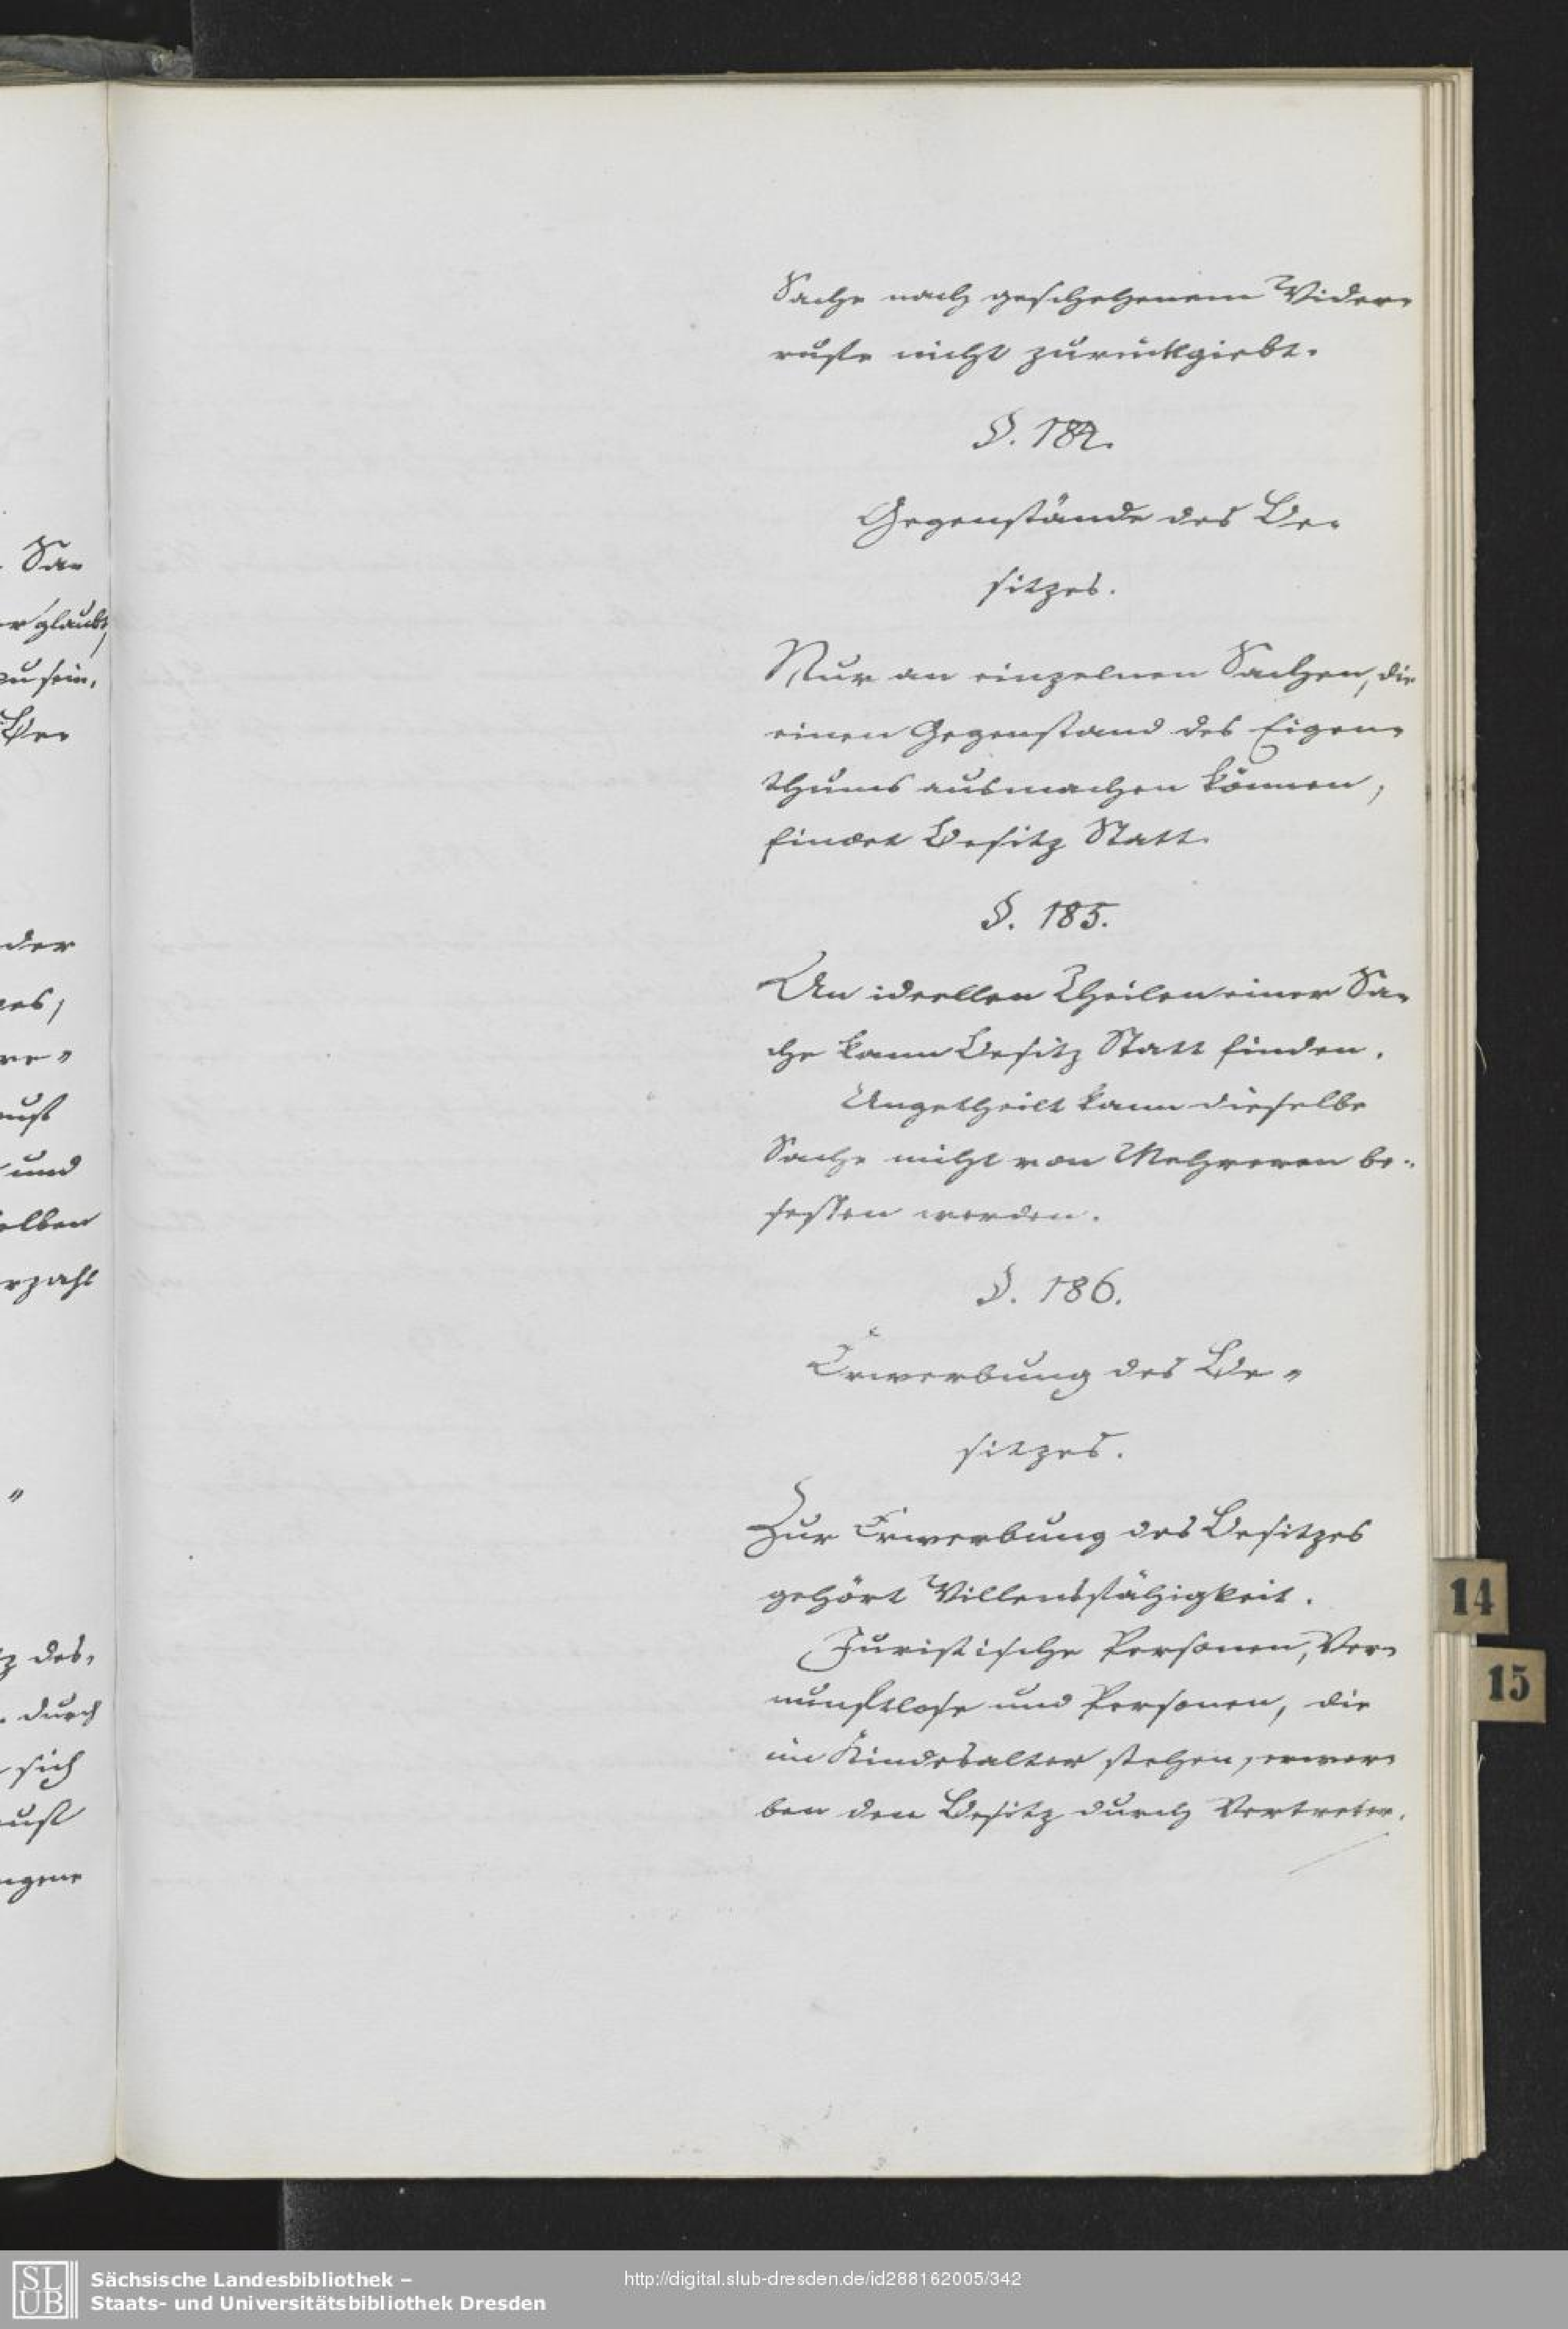 Sa-
er glaubt,
zu sein,
Be-
der
und
selben
erzahl
"
durch
sich
Sache nach geschehenem Wider-
rufe nicht zurückgiebt.
§. 184.
Gegenstände des Be-
sitzes.
Nur an einzelnen Sachen, die
einen Gegenstand des Eigen-
thums ausmachen können,
findet Besitz Statt.
§. 185.
An ideellen Theilen einer Sa-
che kann Besitz Statt finden.
Ungetheilt kann dieselbe
Sache nicht von Mehreren be-
sessen werden.
§. 186.
Erwerbung des Be-
sitzes.
Zur Erwerbung des Besitzes
gehört Willensfähigkeit.
Juristische Personen, Ver-
nunftlose und Personen, die
im Kindesalter stehen, erwer-
ben den Besitz durch Vertreter.
14
15
SLUB
Sächsische Landesbibliothek –
Staats- und Universitätsbibliothek Dresden
http://digital.slub-dresden.de/id288162005/342